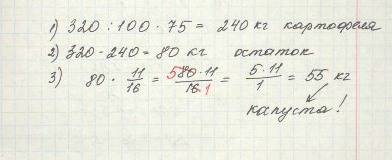 1) 320 : 100 · 75 = 240 кг картофеля
2) 320 - 240 = 80 кг остаток
3) 80 · 11/16 = 5 80·11/16 1 = 5·11/1 = 55 кг
капуста!